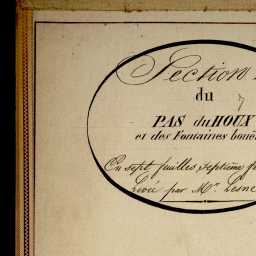 Section
du
PAS du HOUX
et des Fontaines
En sept feuilles septième
Levée par Mr. Lesne